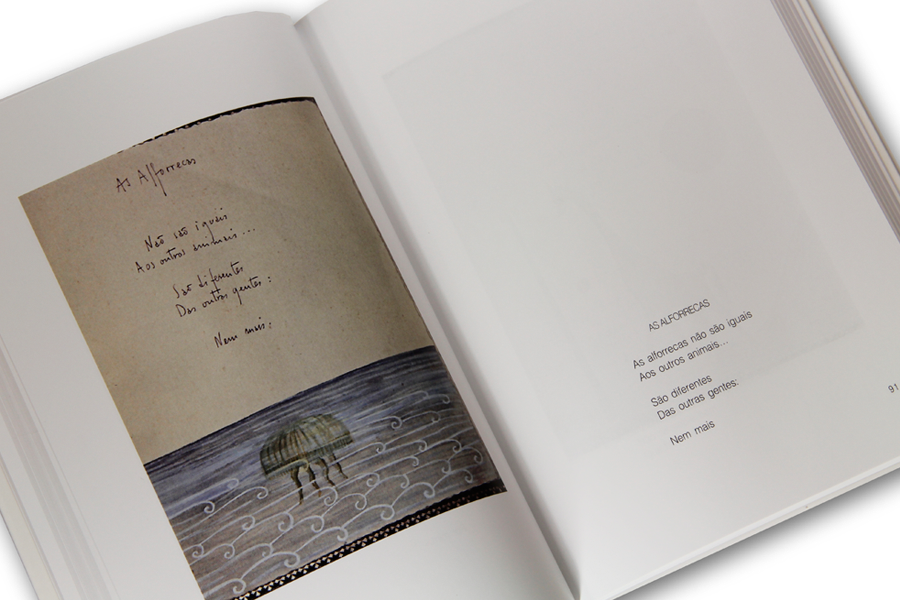 As Alforrecas
Não são iguais
Aos outros animais...
São diferentes
Das outras gentes:
Nem mais:
AS ALFORRECAS
As alforrecas não são iguais
Aos outros animais...
São diferentes
Das outras gentes:
Nem mais
91